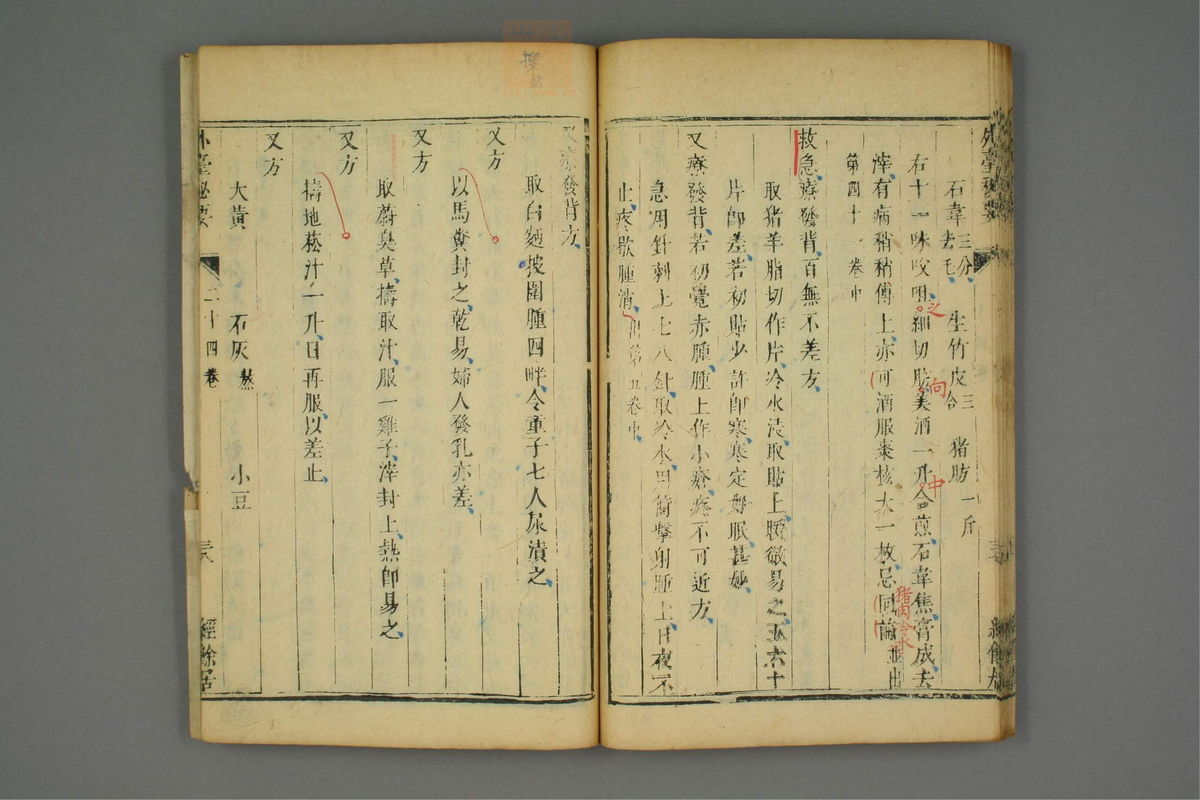 外臺秘要
石韋三分去毛 生竹皮三合 猪肪一斤
右十一味㕮咀細切肪美酒一升合煎石韋焦膏成去
滓有病稍稍傅上亦可酒服棗核大一枚忌同前並出
之
向
中
猪肉冷水
第四十一卷中
救急療發背百無不差方
取猪羊脂切作片冷水浸取貼上暖徹易之五六十
片即差若初貼少許即寒寒定好眠甚妙
又療發背若初覺赤腫腫上作小瘡疼不可近方
急用針刺上七八針取冷水四筒擊射腫上日夜不
止疼歇腫消出第五卷中
又療發背方
取白麵按圍腫四畔令童子七人尿漬之
又方
以馬糞封之乾易婦人發乳亦差
又方
取蔚臭草擣取汁服一雞子滓封上熱即易之
又方
擣地菘汁一升日再服以差止
又方
大黃 石灰熬 小豆
外臺秘要 二十四卷 經餘居